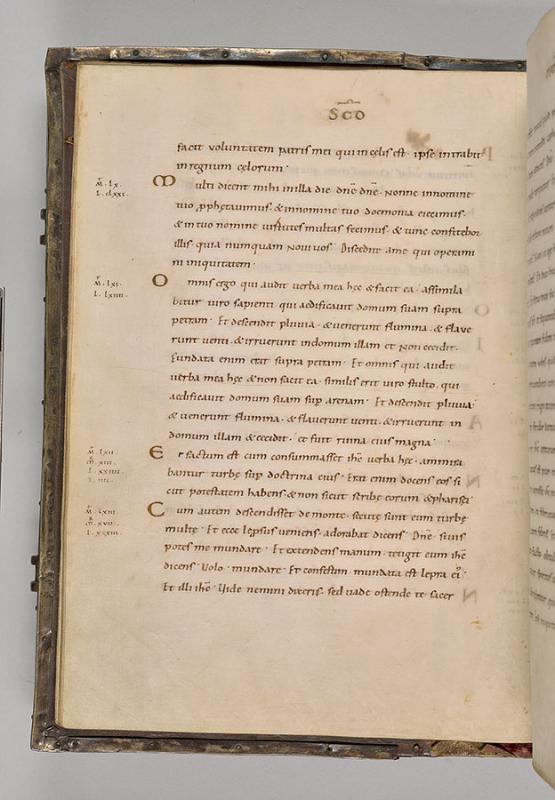 SCD
facit voluntatem patris mei qui in cęlis est · ipse intrabit
in regnum cęlorum ·
m̅. lx.
l. clxxi.
Multi dicent mihi in illa die dn̅e dn̅e · Nonne in nomine
tuo ꝓphetavimus · & in nomine tuo doemonia eiecimus ·
& in tuo nomine virtutes multas fecimus · & tunc confitebor
illis quia numquam novi vos · Discedite a me qui operami
ni iniquitatem ·
m̅. lxi.
l. lxiiii.
Omnis ergo qui audit verba mea hęc & facit ea · assimila
bitur viro sapienti · qui aedificavit domum suam supra
petram · Et descendit pluvia · & venerunt flumina · & flave
runt venti · & irruerunt in domum illam et non cecidit ·
Fundata enim erat supra petram · Et omnis qui audit
verba mea hęc & non facit ea · similis erit viro stulto · qui
aedificavit domum suam sup̅ arenam · Et descendit pluvia
& venerunt flumina · & flaverunt venti · & irruerunt in
domum illam & cecidit · et fuit ruina eius magna ·
m̅. lxii.
l. xxiiii.
Et factum est cum consummasset ih̅s verba hęc · ammira
bantur turbę sup̅ doctrina eius · Erat enim docens eos si
cut potestatem habens & non sicut scribę eorum & pharisęi
m̅. lxiii.
l. xxxiii.
Cum autem descendisset de monte · secutę sunt eum turbę
multę · Et ecce leprosus veniens · adorabat dicens · Dn̅e · si vis
potes me mundare · Et extendens manum · tetigit eum ih̅s
dicens · Volo · mundare · Et confestim mundata est lepra ei'
Et ait illi ih̅s · Vide nemini dixeris · sed vade ostende te sacer